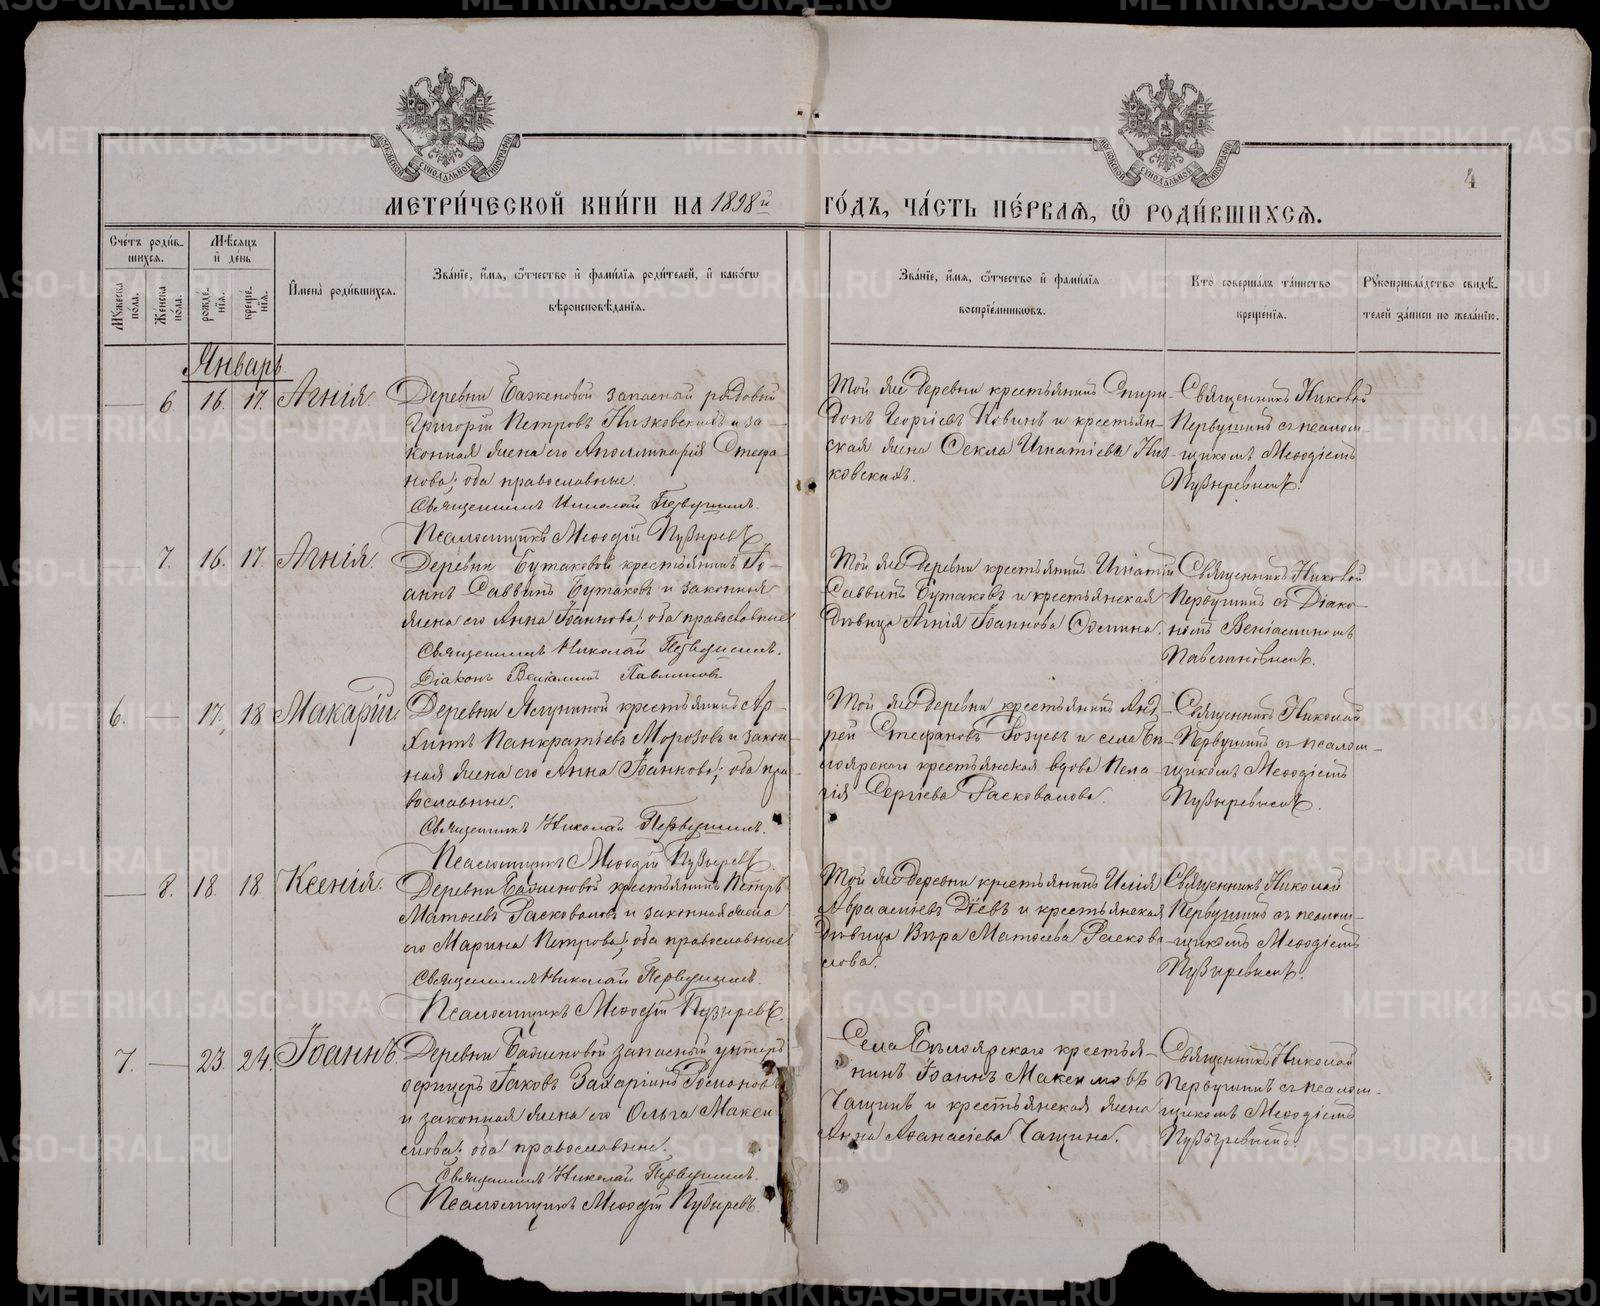 МЕТРИ́ЧЕСКОЙ КНИ́ГИ НА 1898й ГО́ДЪ, ЧА́СТЬ ПЕ́РВАЯ, Ѡ РОДИ́ВШИХСЯ.
4
Сче́тъ роди́вшихся.
Мꙋ́жеска по́ла.
Же́нска по́ла.
Мѣ́сяцъ и҆ де́нь
рожде́нїя.
креще́нїя.
И҆мена̀ роди́вшихся.
Зва́нїе, и҆́мя, ѻ҆́тчество и҆ фами́лїя роди́телей, и҆ како́гѡ
вѣроисповѣ́данїя.
Зва́нїе, и҆́мя, ѻ҆́тчество и҆ фами́лїя
воспрїе́мникѡвъ.
Кто̀ соверша́лъ та́инство
креще́нїя.
Рꙋкоприкла́дство свидѣ́-
телей за́писи по жела́нїю.
Январь
6. 16. 17. Агнія.
Деревни Баженовой запасный рядовой
Григорій Петровъ Низковскихъ и за-
конная жена его Аполлинарія Стефа-
нова; оба православные.
Священникъ Николай Первушинъ.
Псаломщикъ Меѳодій Пузыревъ
Той же деревни крестьянинъ Спири-
донъ Георгіевъ Ковинъ и крестьян-
ская жена Секла Игнатіева Низ-
ковскихъ.
Священникъ Николай
Первушинъ съ псалом-
щикомъ Меѳодіемъ
Пузыревымъ.
7. 16. 17. Агнія.
Деревни Бутаковой крестьянинъ Іо-
аннъ Саввинъ Бутаковъ и законная
жена его Анна Іоаннова; оба православные
Священникъ Николай Первушинъ.
Діаконъ Веніаминъ Павлиновъ
Той же деревни крестьянинъ Игнатій
Саввинъ Бутаковъ и крестьянская
дѣвица Агнія Іоаннова Сомина.
Священникъ Николай
Первушинъ съ Діако-
номъ Веніаминомъ
Павлиновымъ.
6. 17. 18 Макарій
Деревни Ягуниной крестьянинъ Ар-
хиппъ Панкратьевъ Морозовъ и закон-
ная жена его Анна Іоаннова; оба пра-
вославные.
Священникъ Николай Первушинъ.
Псаломщикъ Меѳодій Пузыревъ.
Той же деревни крестьянинъ Анд-
рей Стефановъ и села Бѣ-
лоярскаго крестьянская вдова Пела-
гія Сергіева Расковалова.
Священникъ Николай
Первушинъ съ псалом-
щикомъ Меѳодіемъ
Пузыревымъ.
8. 18 18. Ксенія.
Деревни Баженовой крестьянинъ Петръ
Матѳіевъ Расковаловъ и законная жена
его Марина Петрова; оба православные
Священникъ Николай Первушинъ.
Псаломщикъ Меѳодій Пузыревъ.
Той же деревни крестьянинъ Илія
Авраамовъ Діевъ и крестьянская
дѣвица Вѣра Матѳіева Раскова-
лова.
Священникъ Николай
Первушинъ съ псалом-
щикомъ Меѳодіемъ
Пузыревымъ.
7. 23. 24. Іоаннъ.
Деревни Баженовой запасный унтеръ
офицеръ Іаковъ Захаріинъ Романовъ
и законная жена его Ольга Макси-
мова; оба православные.
Священникъ Николай Первушинъ.
Псаломщикъ Меѳодій Пузыревъ.
Села Бѣлоярскаго крестья-
нинъ Іоаннъ Максимовъ
Чащинъ и крестьянская жена
Анна Аѳанасіева Чащина.
Священникъ Николай
Первушинъ съ псалом-
щикомъ Меѳодіемъ
Пузыревымъ.
METRIKI.GASO-URAL.RU